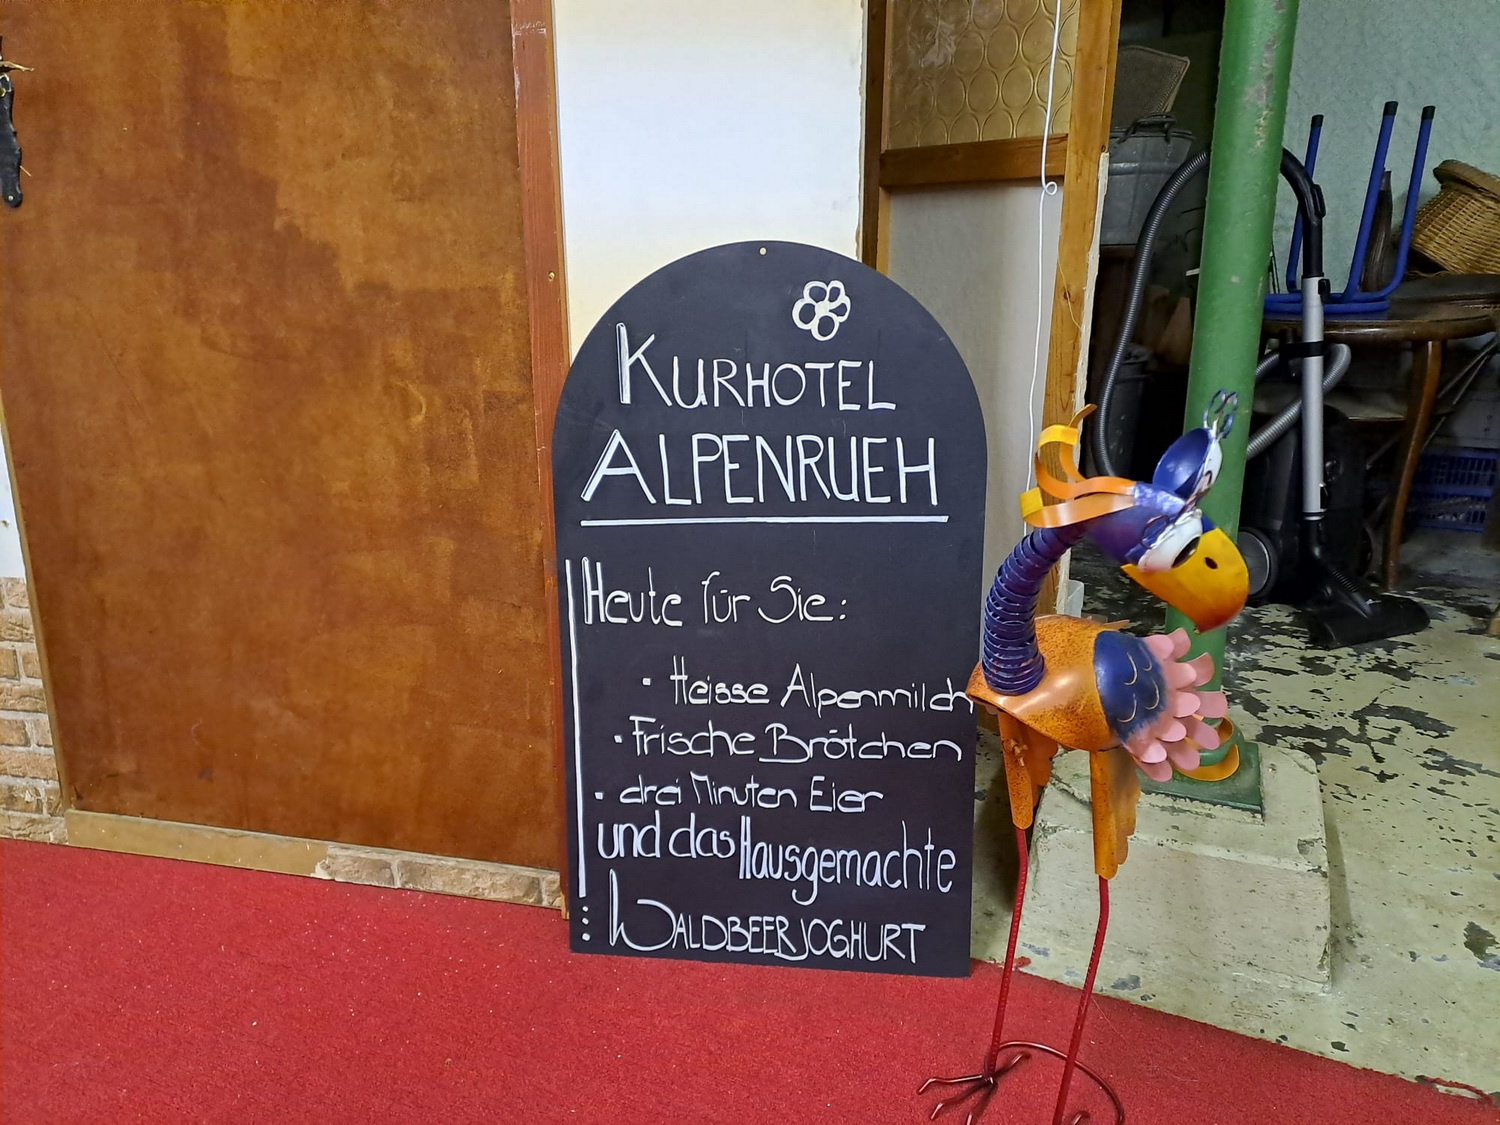 KURHOTEL
ALPENRUEH
Heute für Sie:
· Heisse Alpenmilch
· Frische Brötchen
· drei Minuten Eier
und das Hausgemachte
WALDBEERJOGHURT